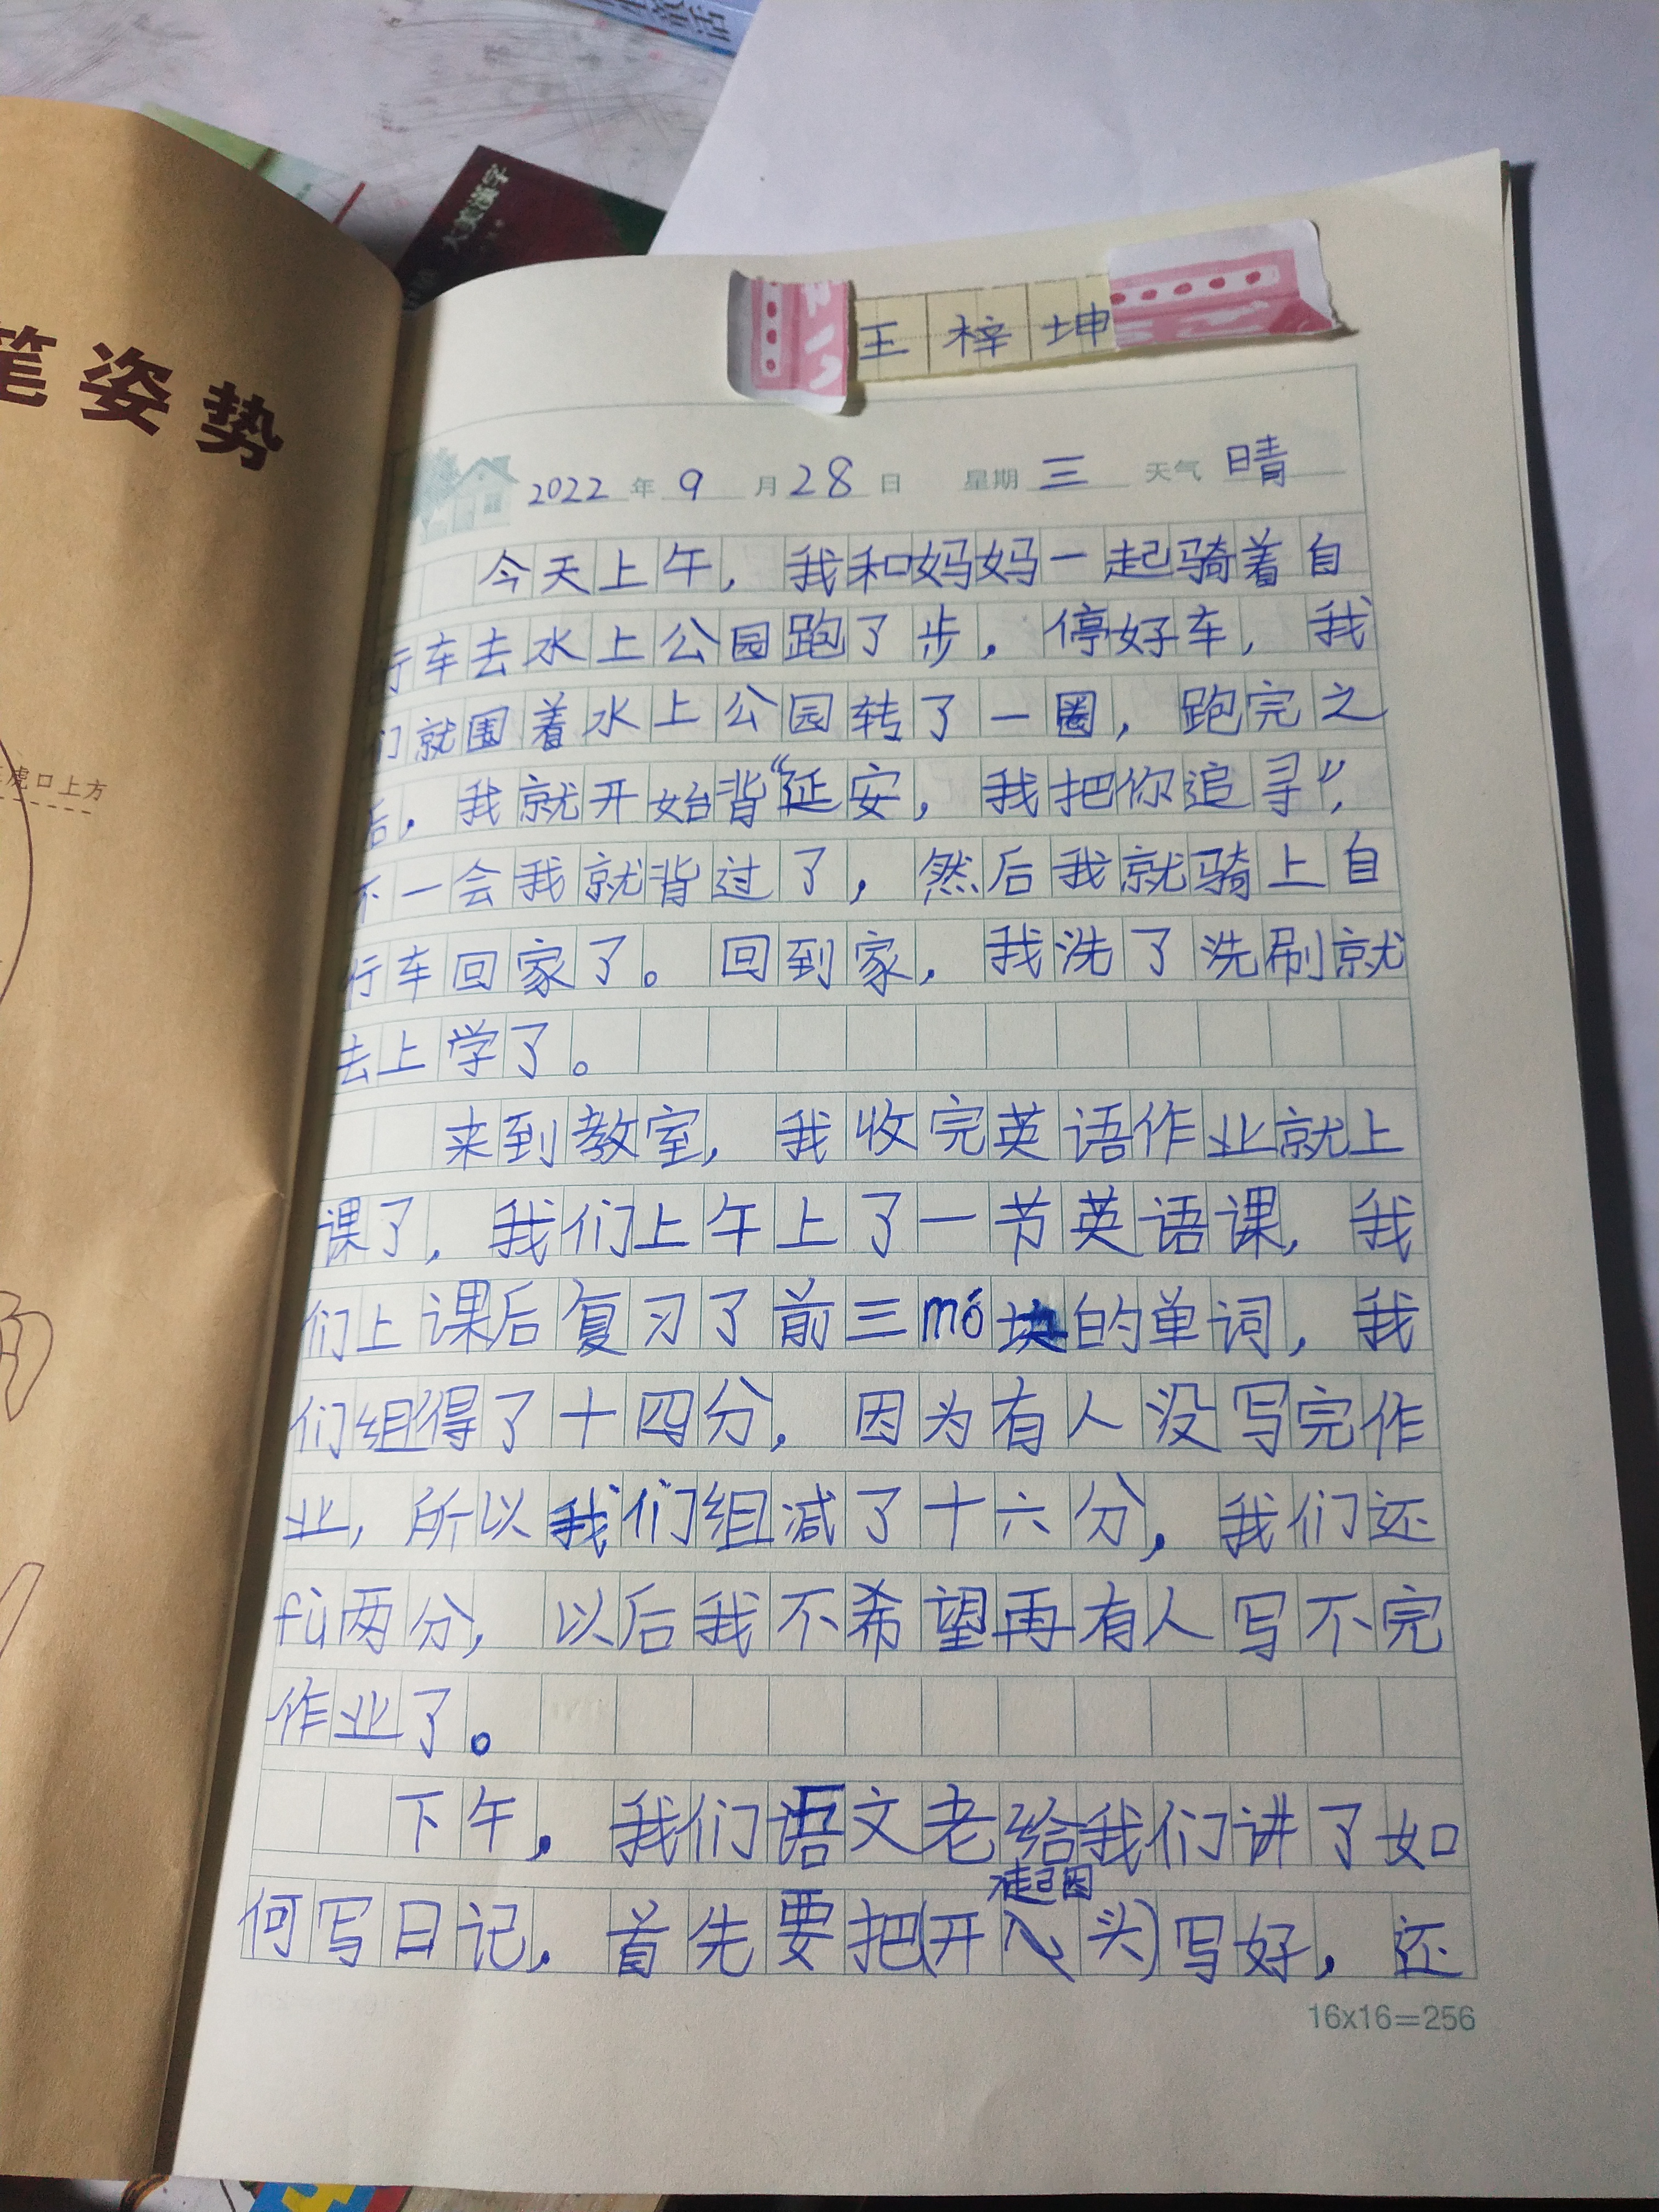 大美汉字
笔姿势
虎口上方
王梓坤
2022年9月28日 星期三 天气晴
今天上午，我和妈妈一起骑着自
行车去水上公园跑了步，停好车，我
们就围着水上公园转了一圈，跑完之
后，我就开始背“延安，我把你追寻”，
不一会我就背过了，然后我就骑上自
行车回家了。回到家，我洗了洗刷就
去上学了。
来到教室，我收完英语作业就上
课了，我们上午上了一节英语课，我
们上课后复习了前三mó块的单词，我
们组得了十四分，因为有人没写完作
业，所以我们组减了十六分，我们还
fù两分，以后我不希望再有人写不完
作业了。
下午，我们语文老给我们讲了如
何写日记，首先要把(开头)写好，还
16x16=256